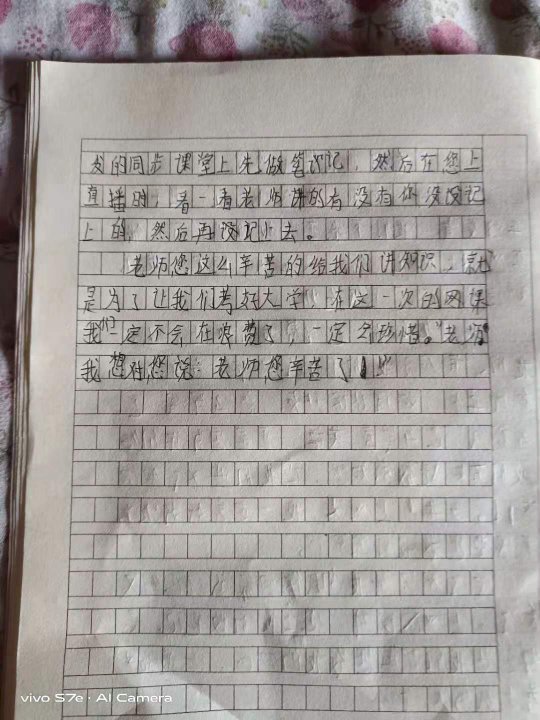 发的同步课堂上先做笔记，然后在您上
直播时，看一看老师讲的有没有你没记
上的，然后再记上去。
老师您这么辛苦的给我们讲知识，就
是为了让我们考好大学，在这一次的网课
我们一定不会在浪费了，一定会珍惜。"老师
我想对您说：老师您辛苦了！！"
vivo S7e · AI Camera